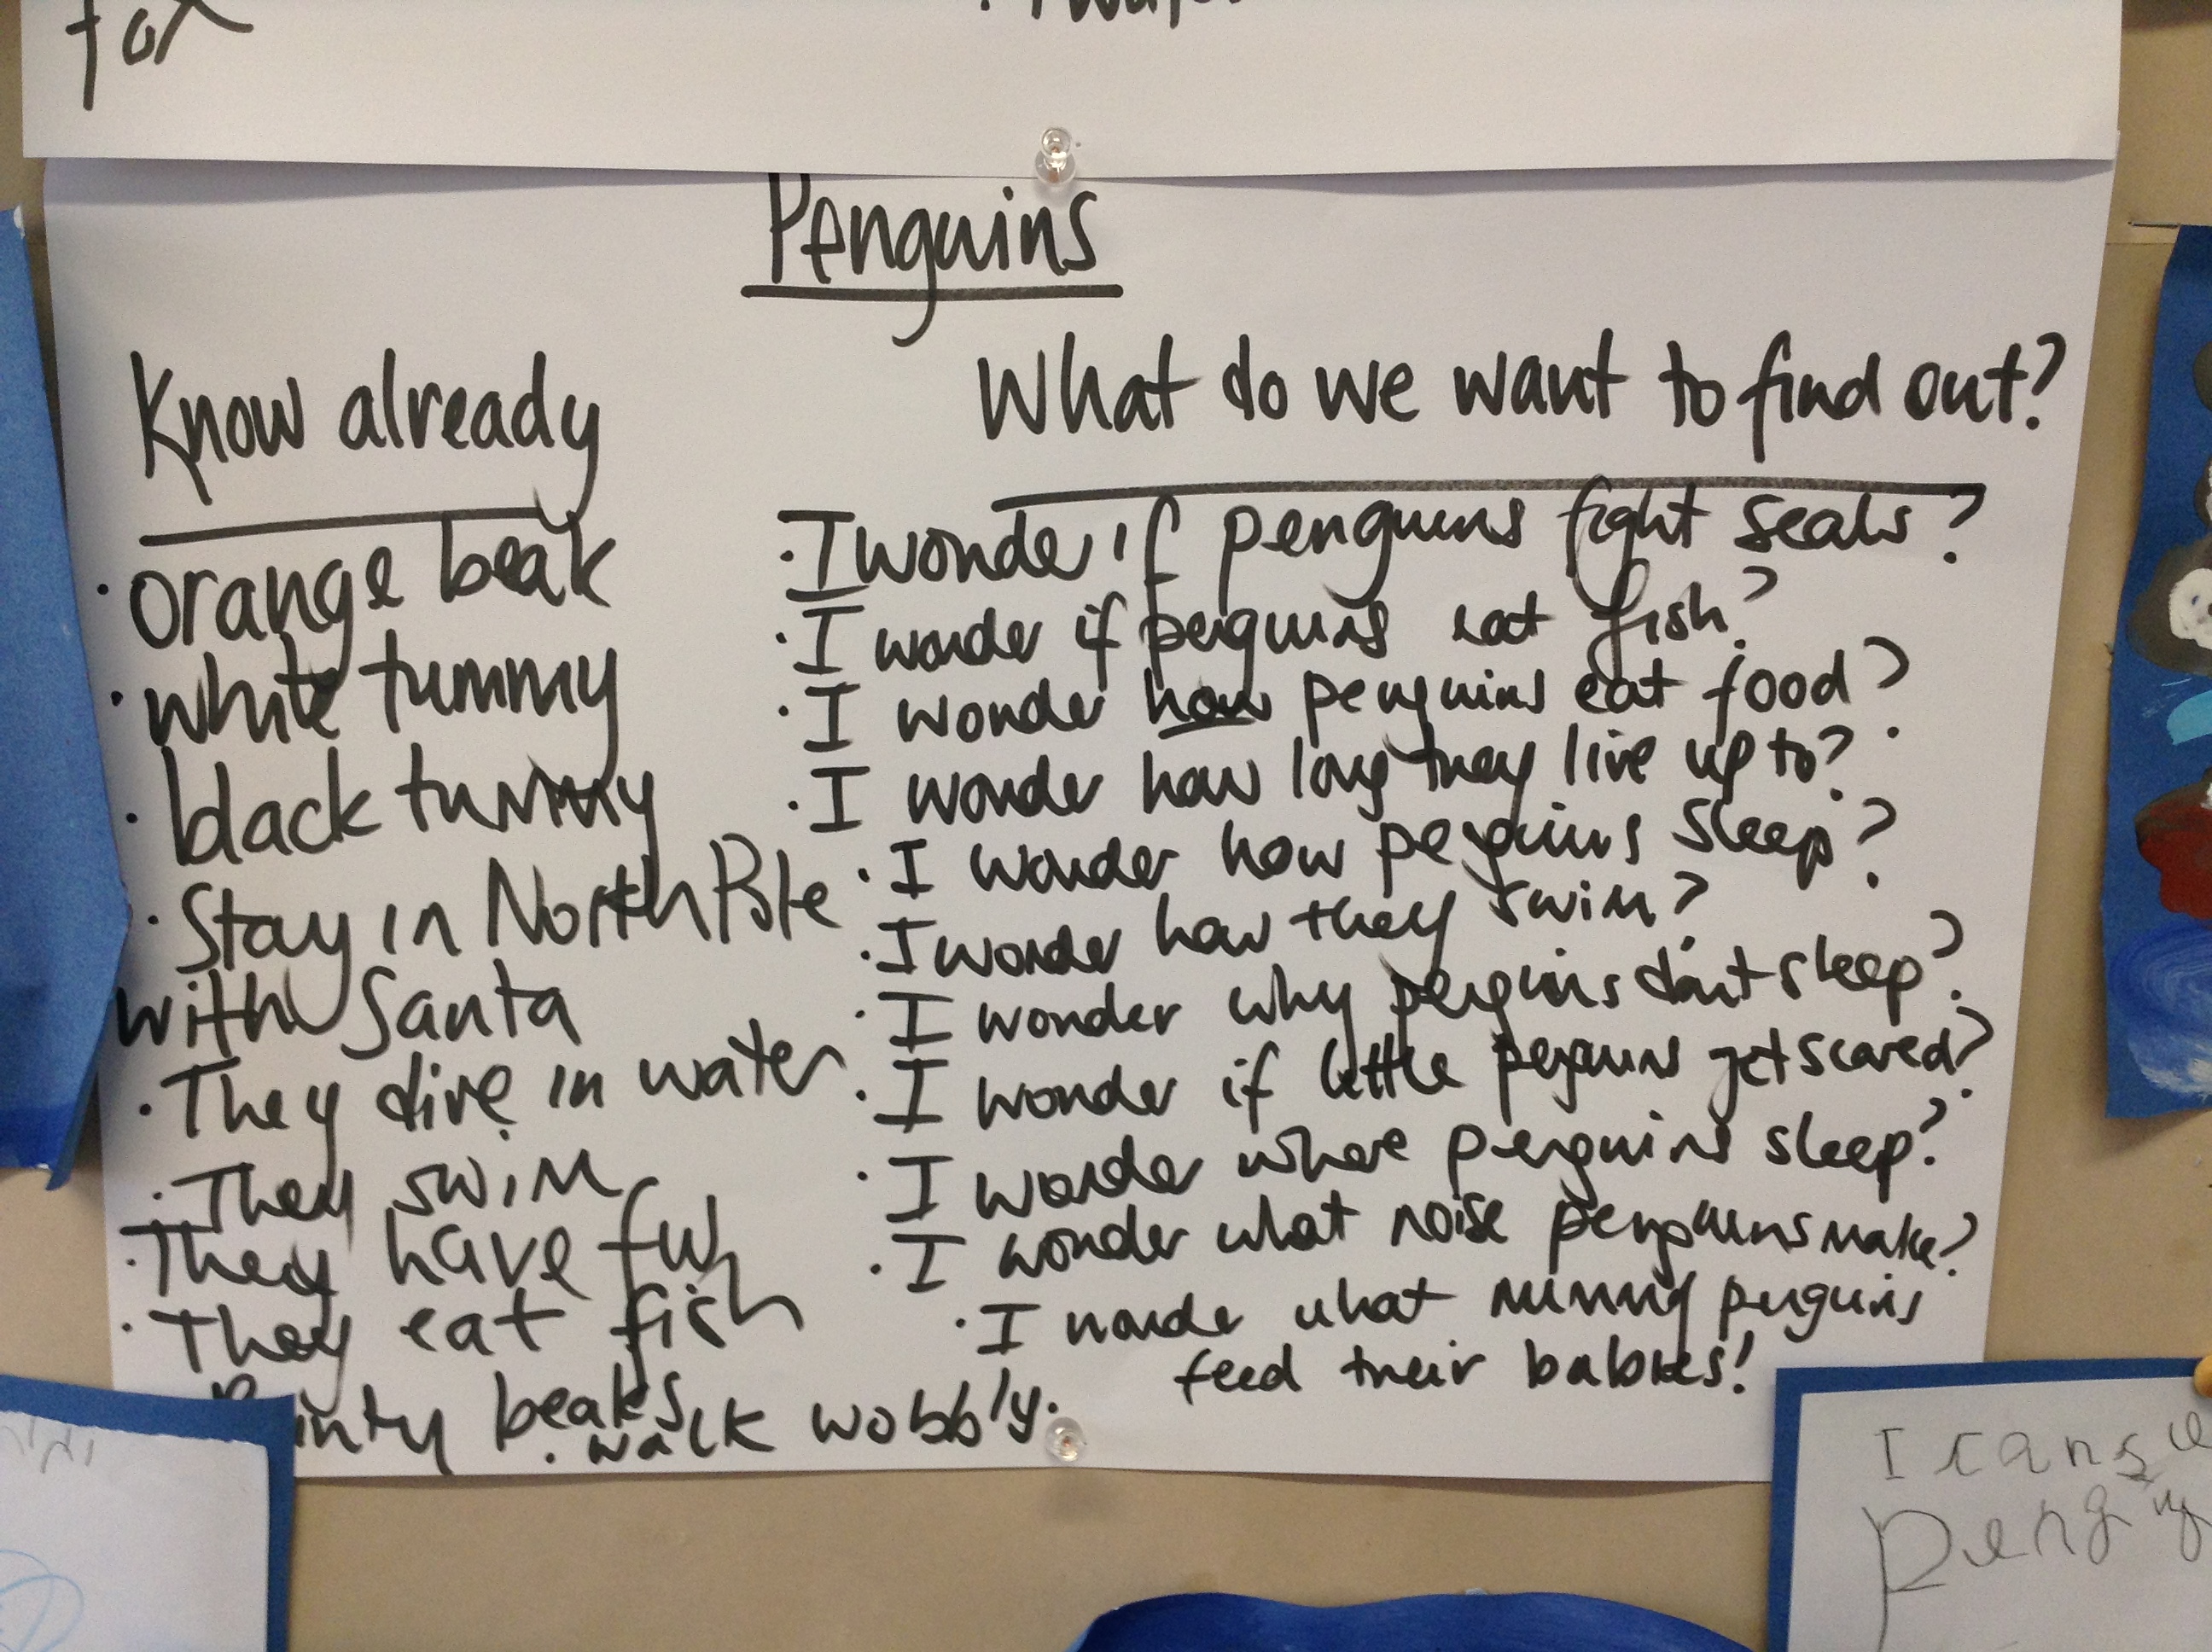 fox
Penguins
Know already
· orange beak
· white tummy
· black tummy
· Stay in North Pole
with Santa
· They dive in water
· They swim
· They have fun
· They eat fish
beaks
· walk wobbly.
What do we want to find out?
· I wonder if penguins fight seals?
· I wonder if penguins eat fish?
· I wonder how penguins eat food?
· I wonder how long they live up to?
· I wonder how penguins sleep?
· I wonder how they swim?
· I wonder why penguins don't sleep?
· I wonder if little penguins get scared?
· I wonder where penguins sleep?
· I wonder what noise penguins make?
· I wonder what mummy penguins
feed their babies!
I can